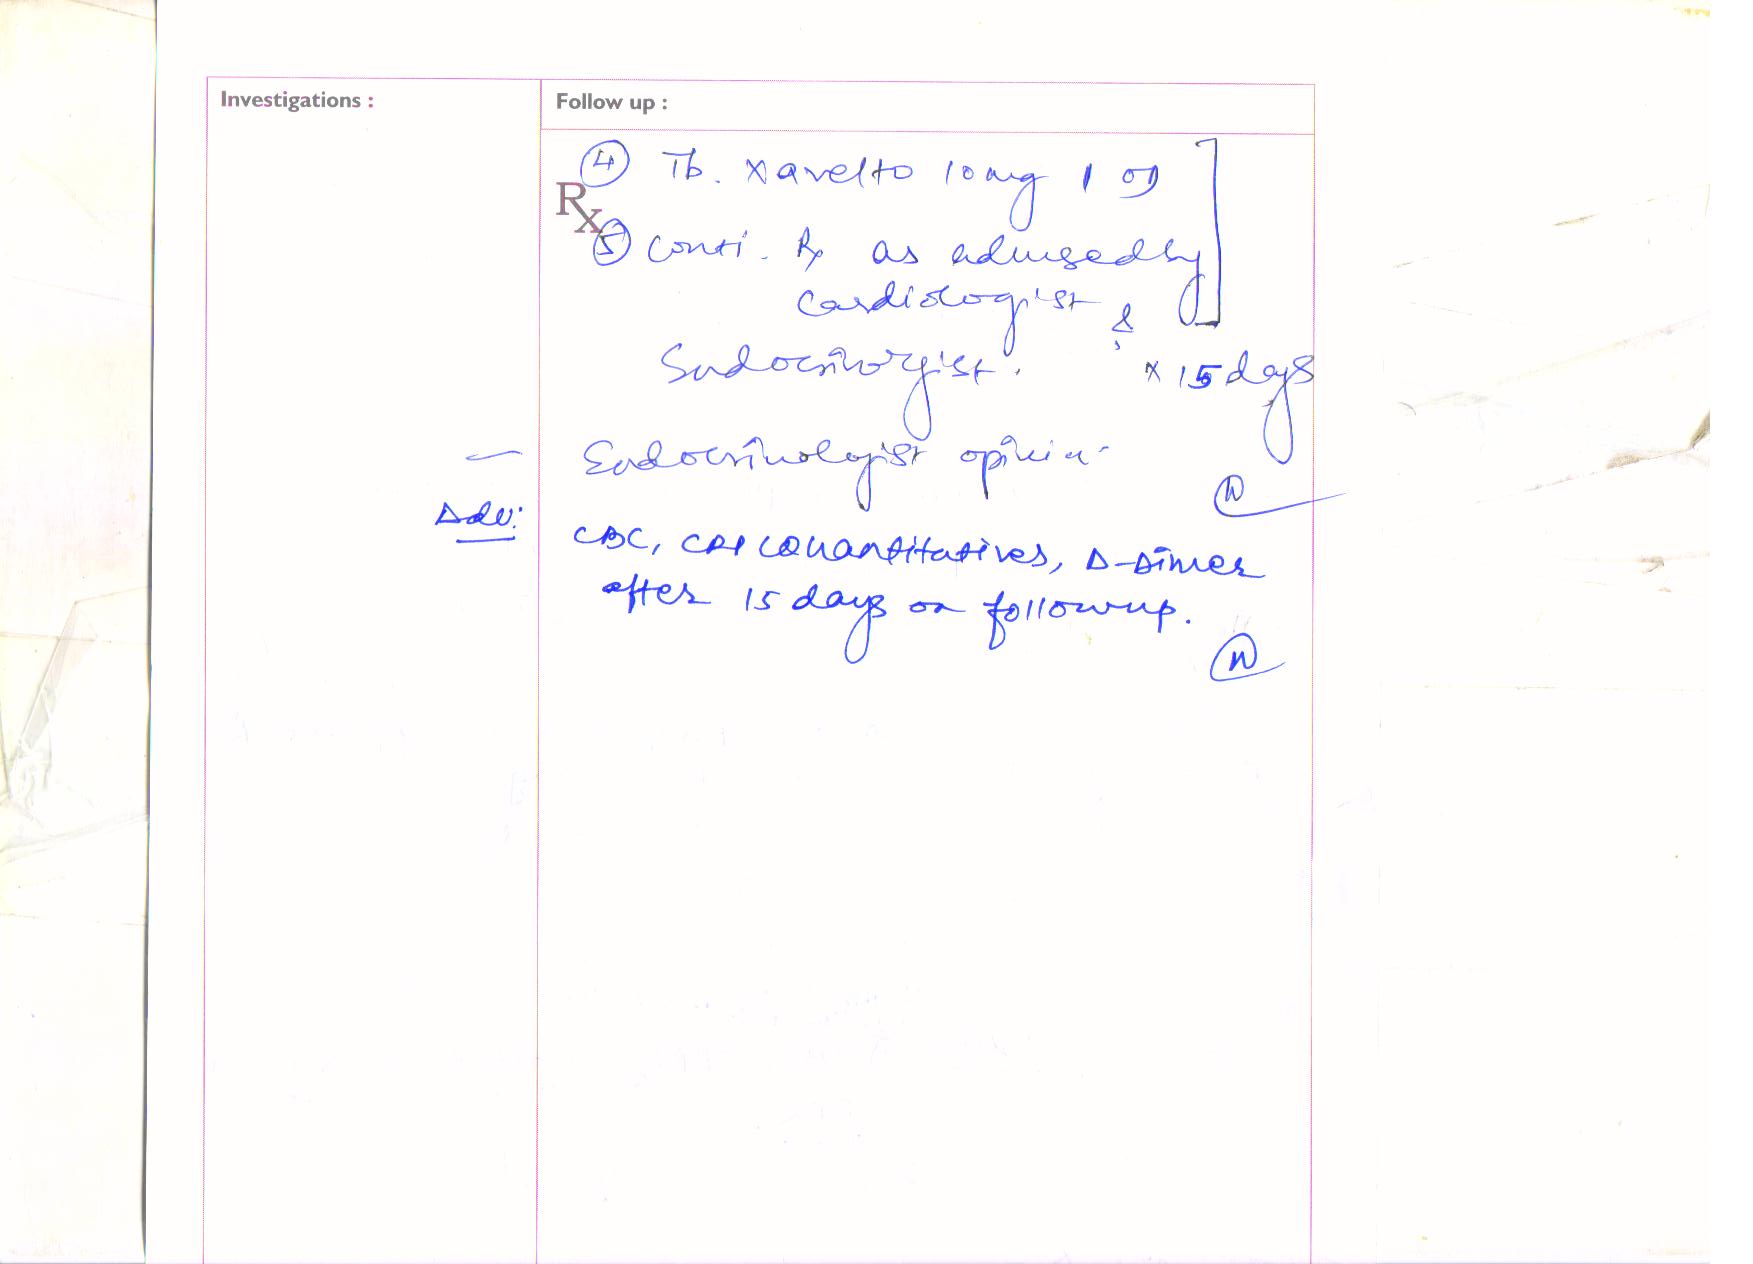 Investigations :
Follow up :
④ Tb. Xarelto 10mg 1 OD
Rx
⑤ Conti. Rx as advised by
Cardiologist &
Endocrinorgist. x 15 days
— Endocrinologist opinion
Adv: CBC, CRP (Quantitatives, D-Dimer
after 15 days on followup.